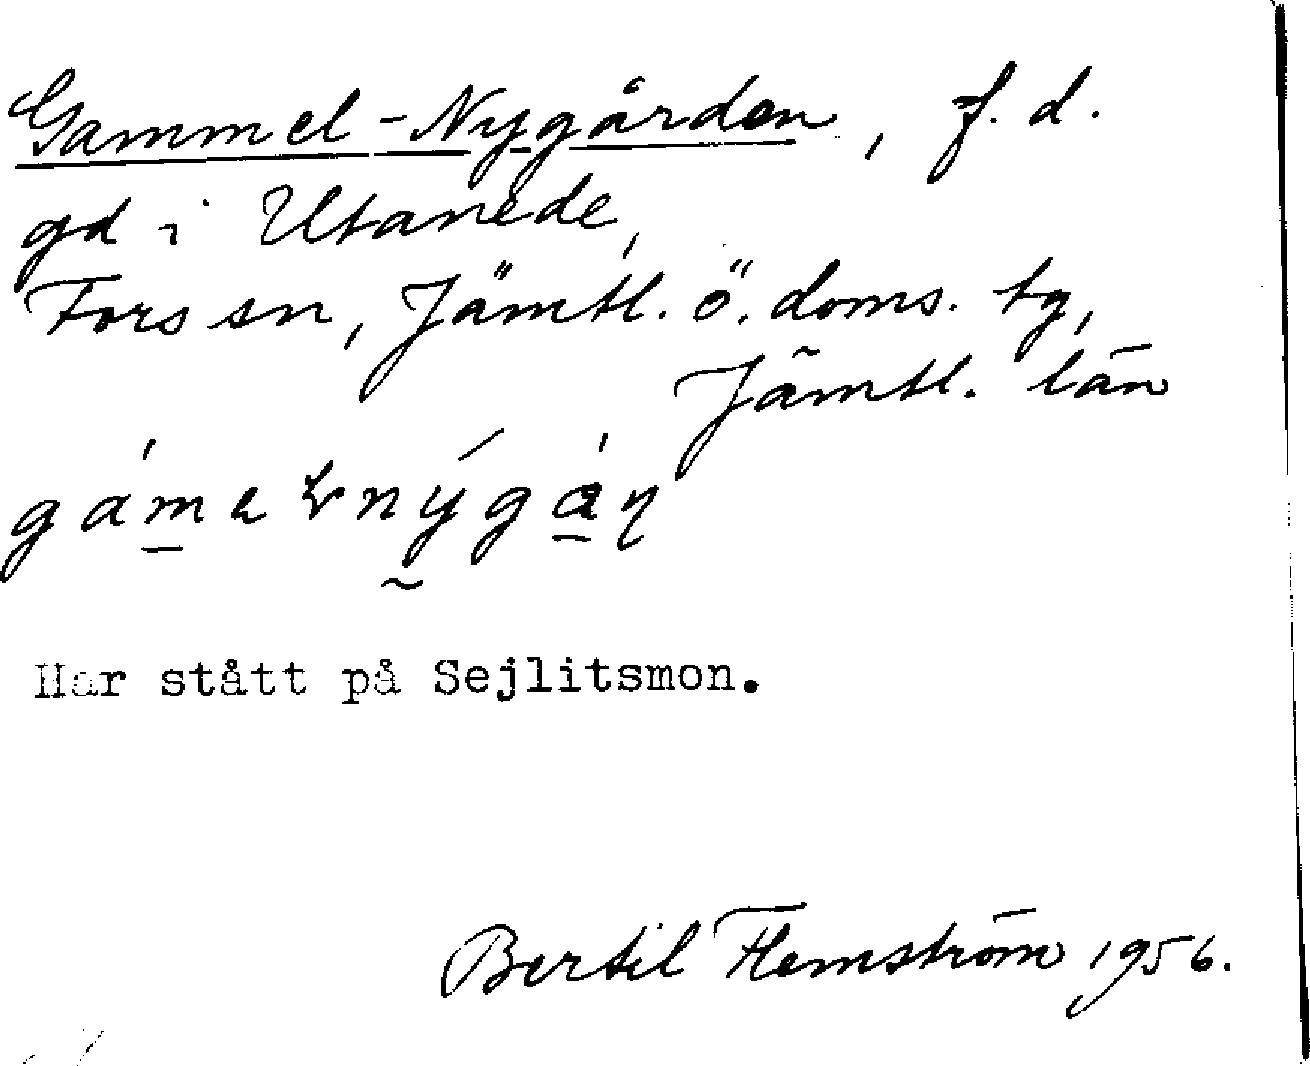 Gammel-Nygården, f.d.
gd i Utanede,
Fors sn, Jämtl. ö. doms. tg,
Jämtl. län
Har stått på Sejlitsmon.
Bertil Flemström 1956.